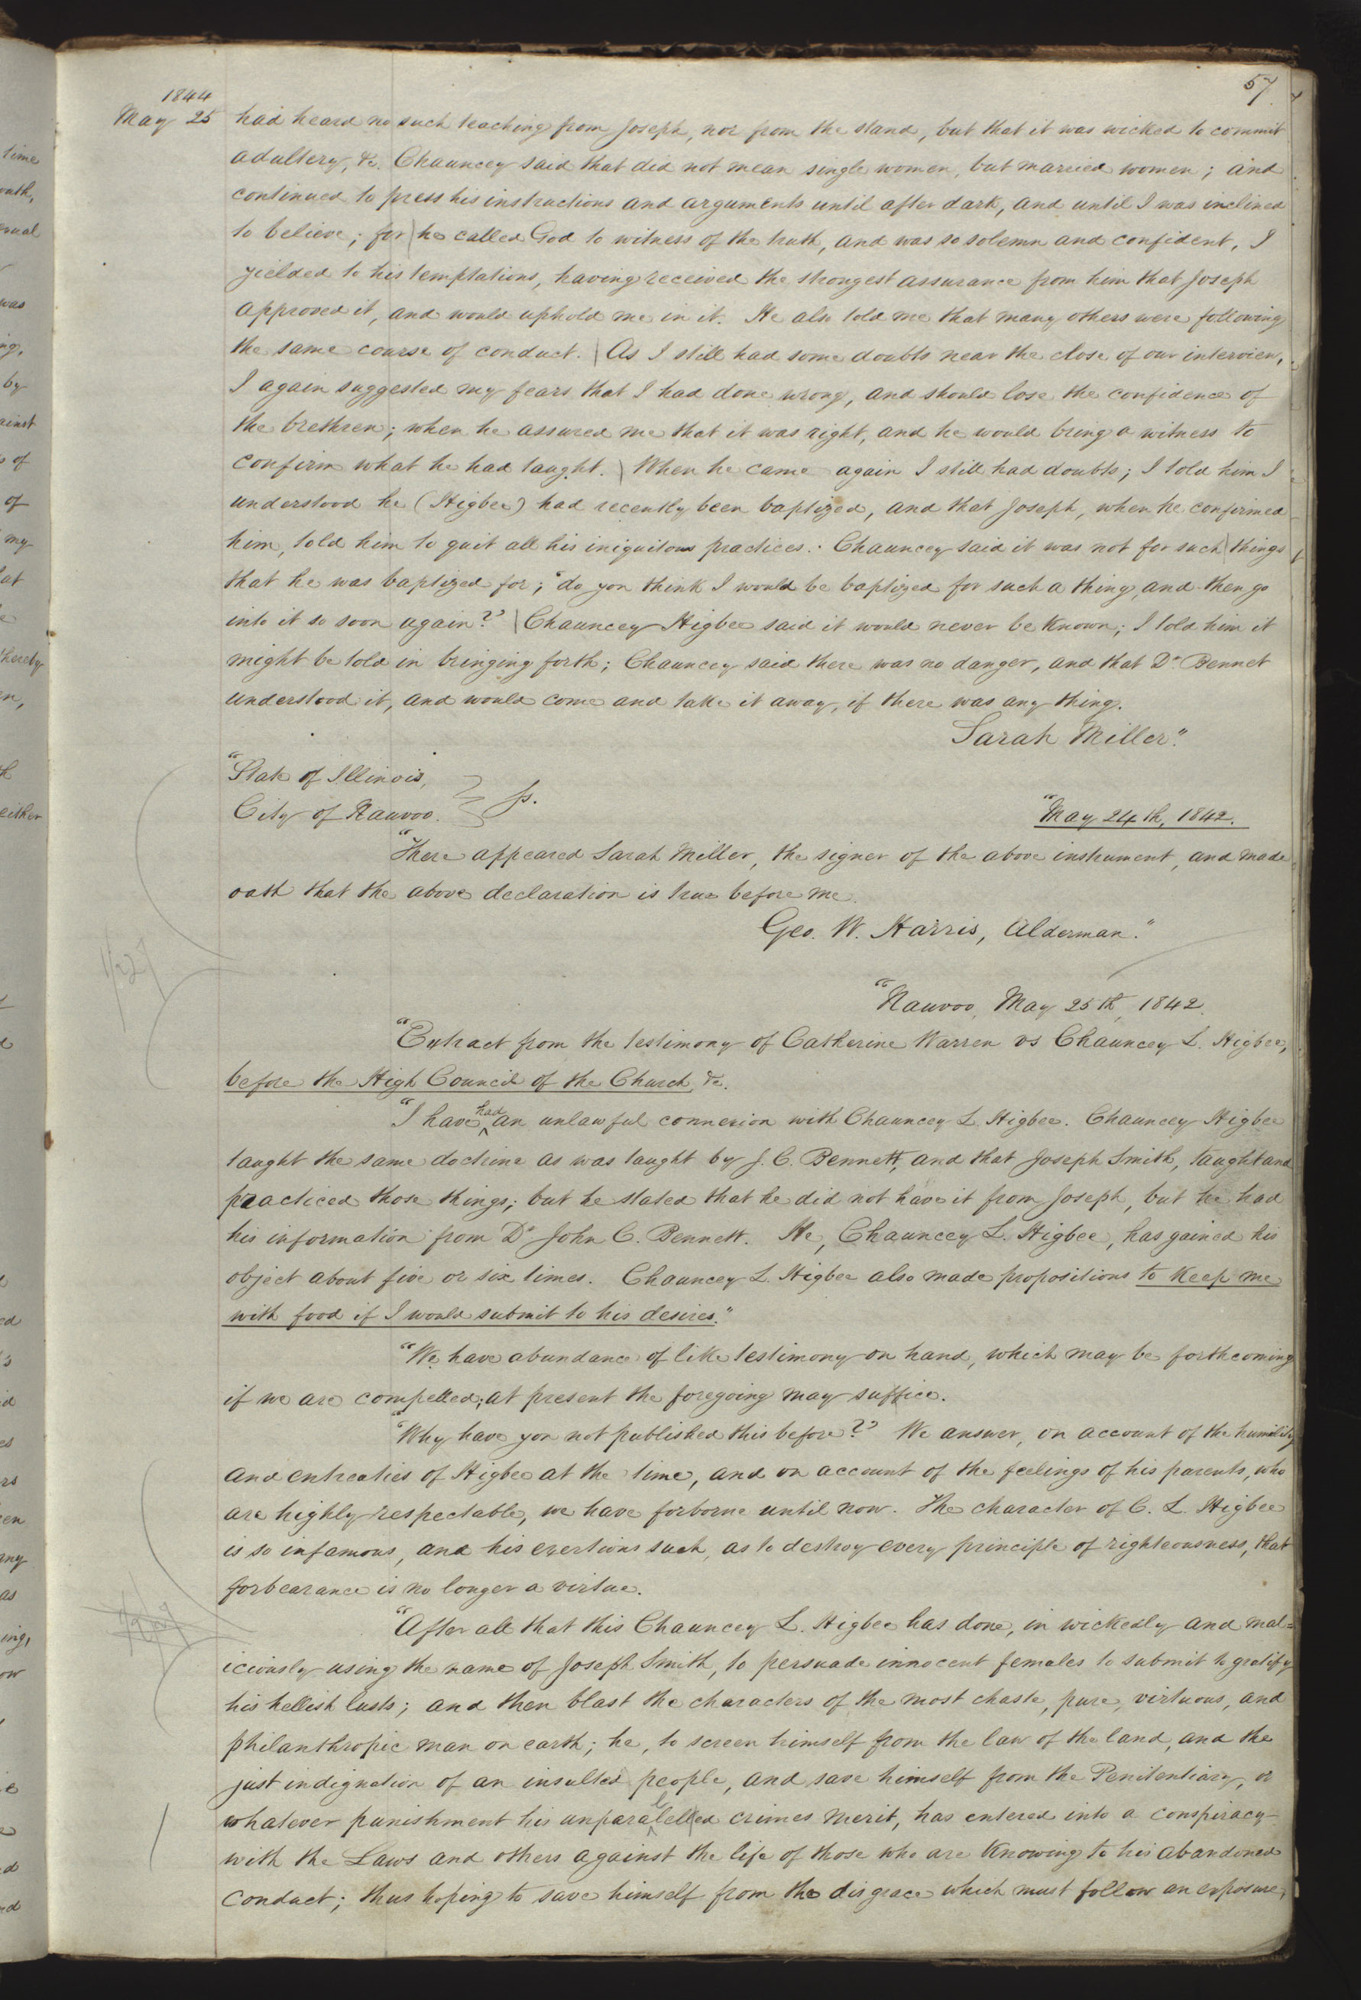 57
1844
May 25 had heard no such teaching from Joseph, nor from the stand, but that it was wicked to commit
adultery, &c. Chauncey said that did not mean single women, but married women; and
continued to press his instructions and arguments until after dark, and until I was inclined
to believe; for he called God to witness of the truth, and was so solemn and confident, I
yielded to his temptations, having received the strongest assurance from him that Joseph
approved it, and would uphold me in it. He also told me that many others were following
the same course of conduct. As I still had some doubts near the close of our interview,
I again suggested my fears that I had done wrong, and should lose the confidence of
the brethren; when he assured me that it was right, and he would bring a witness to
confirm what he had taught. When he came again I still had doubts; I told him I
understood he (Higbee) had recently been baptized, and that Joseph, when he confirmed
him, told him to quit all his iniquitous practices. Chauncey said it was not for such things
that he was baptized for; "do you think I would be baptized for such a thing, and then go
into it so soon again?" Chauncey Higbee said it would never be known; I told him it
might be told in bringing forth; Chauncey said there was no danger, and that Dr. Bennet
understood it, and would come and take it away, if there was any thing.
Sarah Miller."
"State of Illinois,
City of Nauvoo. } ss.
"May 24th, 1842.
"There appeared Sarah Miller, the signer of the above instrument, and made
oath that the above declaration is true before me.
Geo. W. Harris, Alderman."
"Nauvoo, May 25th, 1842.
"Extract from the testimony of Catherine Warren vs Chauncey L. Higbee,
before the High Council of the Church, &c.
"I have had an unlawful connexion with Chauncey L. Higbee. Chauncey Higbee
taught the same doctrine as was taught by J. C. Bennett, and that Joseph Smith, taught and
practiced those things; but he stated that he did not have it from Joseph, but he had
his information from Dr John C. Bennett. He, Chauncey L. Higbee, has gained his
object about five or six times. Chauncey L. Higbee also made propositions to keep me
with food if I would submit to his desires."
"We have abundance of like testimony on hand, which may be forthcoming
if we are compelled; at present the foregoing may suffice.
"Why have you not published this before?" We answer, on account of the humility
and entreaties of Higbee at the time, and on account of the feelings of his parents, who
are highly respectable, we have forborne until now. The character of C. L. Higbee
is so infamous, and his exertions such, as to destroy every principle of righteousness, that
forbearance is no longer a virtue.
"After all that this Chauncey L. Higbee has done, in wickedly and mal=
iciously using the name of Joseph Smith, to persuade innocent females to submit to gratify
his hellish lusts; and then blast the characters of the most chaste, pure, virtuous, and
philanthropic man on earth; he, to screen himself from the law of the land, and the
just indignation of an insulted people, and save himself from the Penitentiary, or
whatever punishment his unparalleled crimes merit, has entered into a conspiracy
with the Laws and others against the life of those who are knowing to his abandoned
conduct; thus hoping to save himself from the disgrace which must follow an exposure,